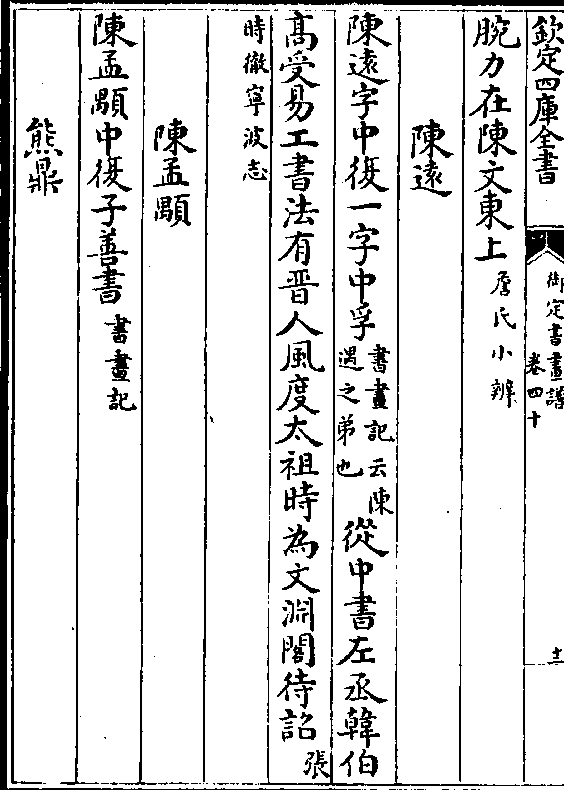 欽定四庫全書
御定書畫譜
卷四十
十二
腕力在陳文東上詹氏小辨
陳遠
陳遠字中復一字中孚書畫記云陳遇之弟也從中書左丞韓伯
高受易工書法有晋人風度太祖時為文淵閣待詔張
時徹寧波志
陳孟顒
陳孟顒中復子善書書畫記
熊鼎